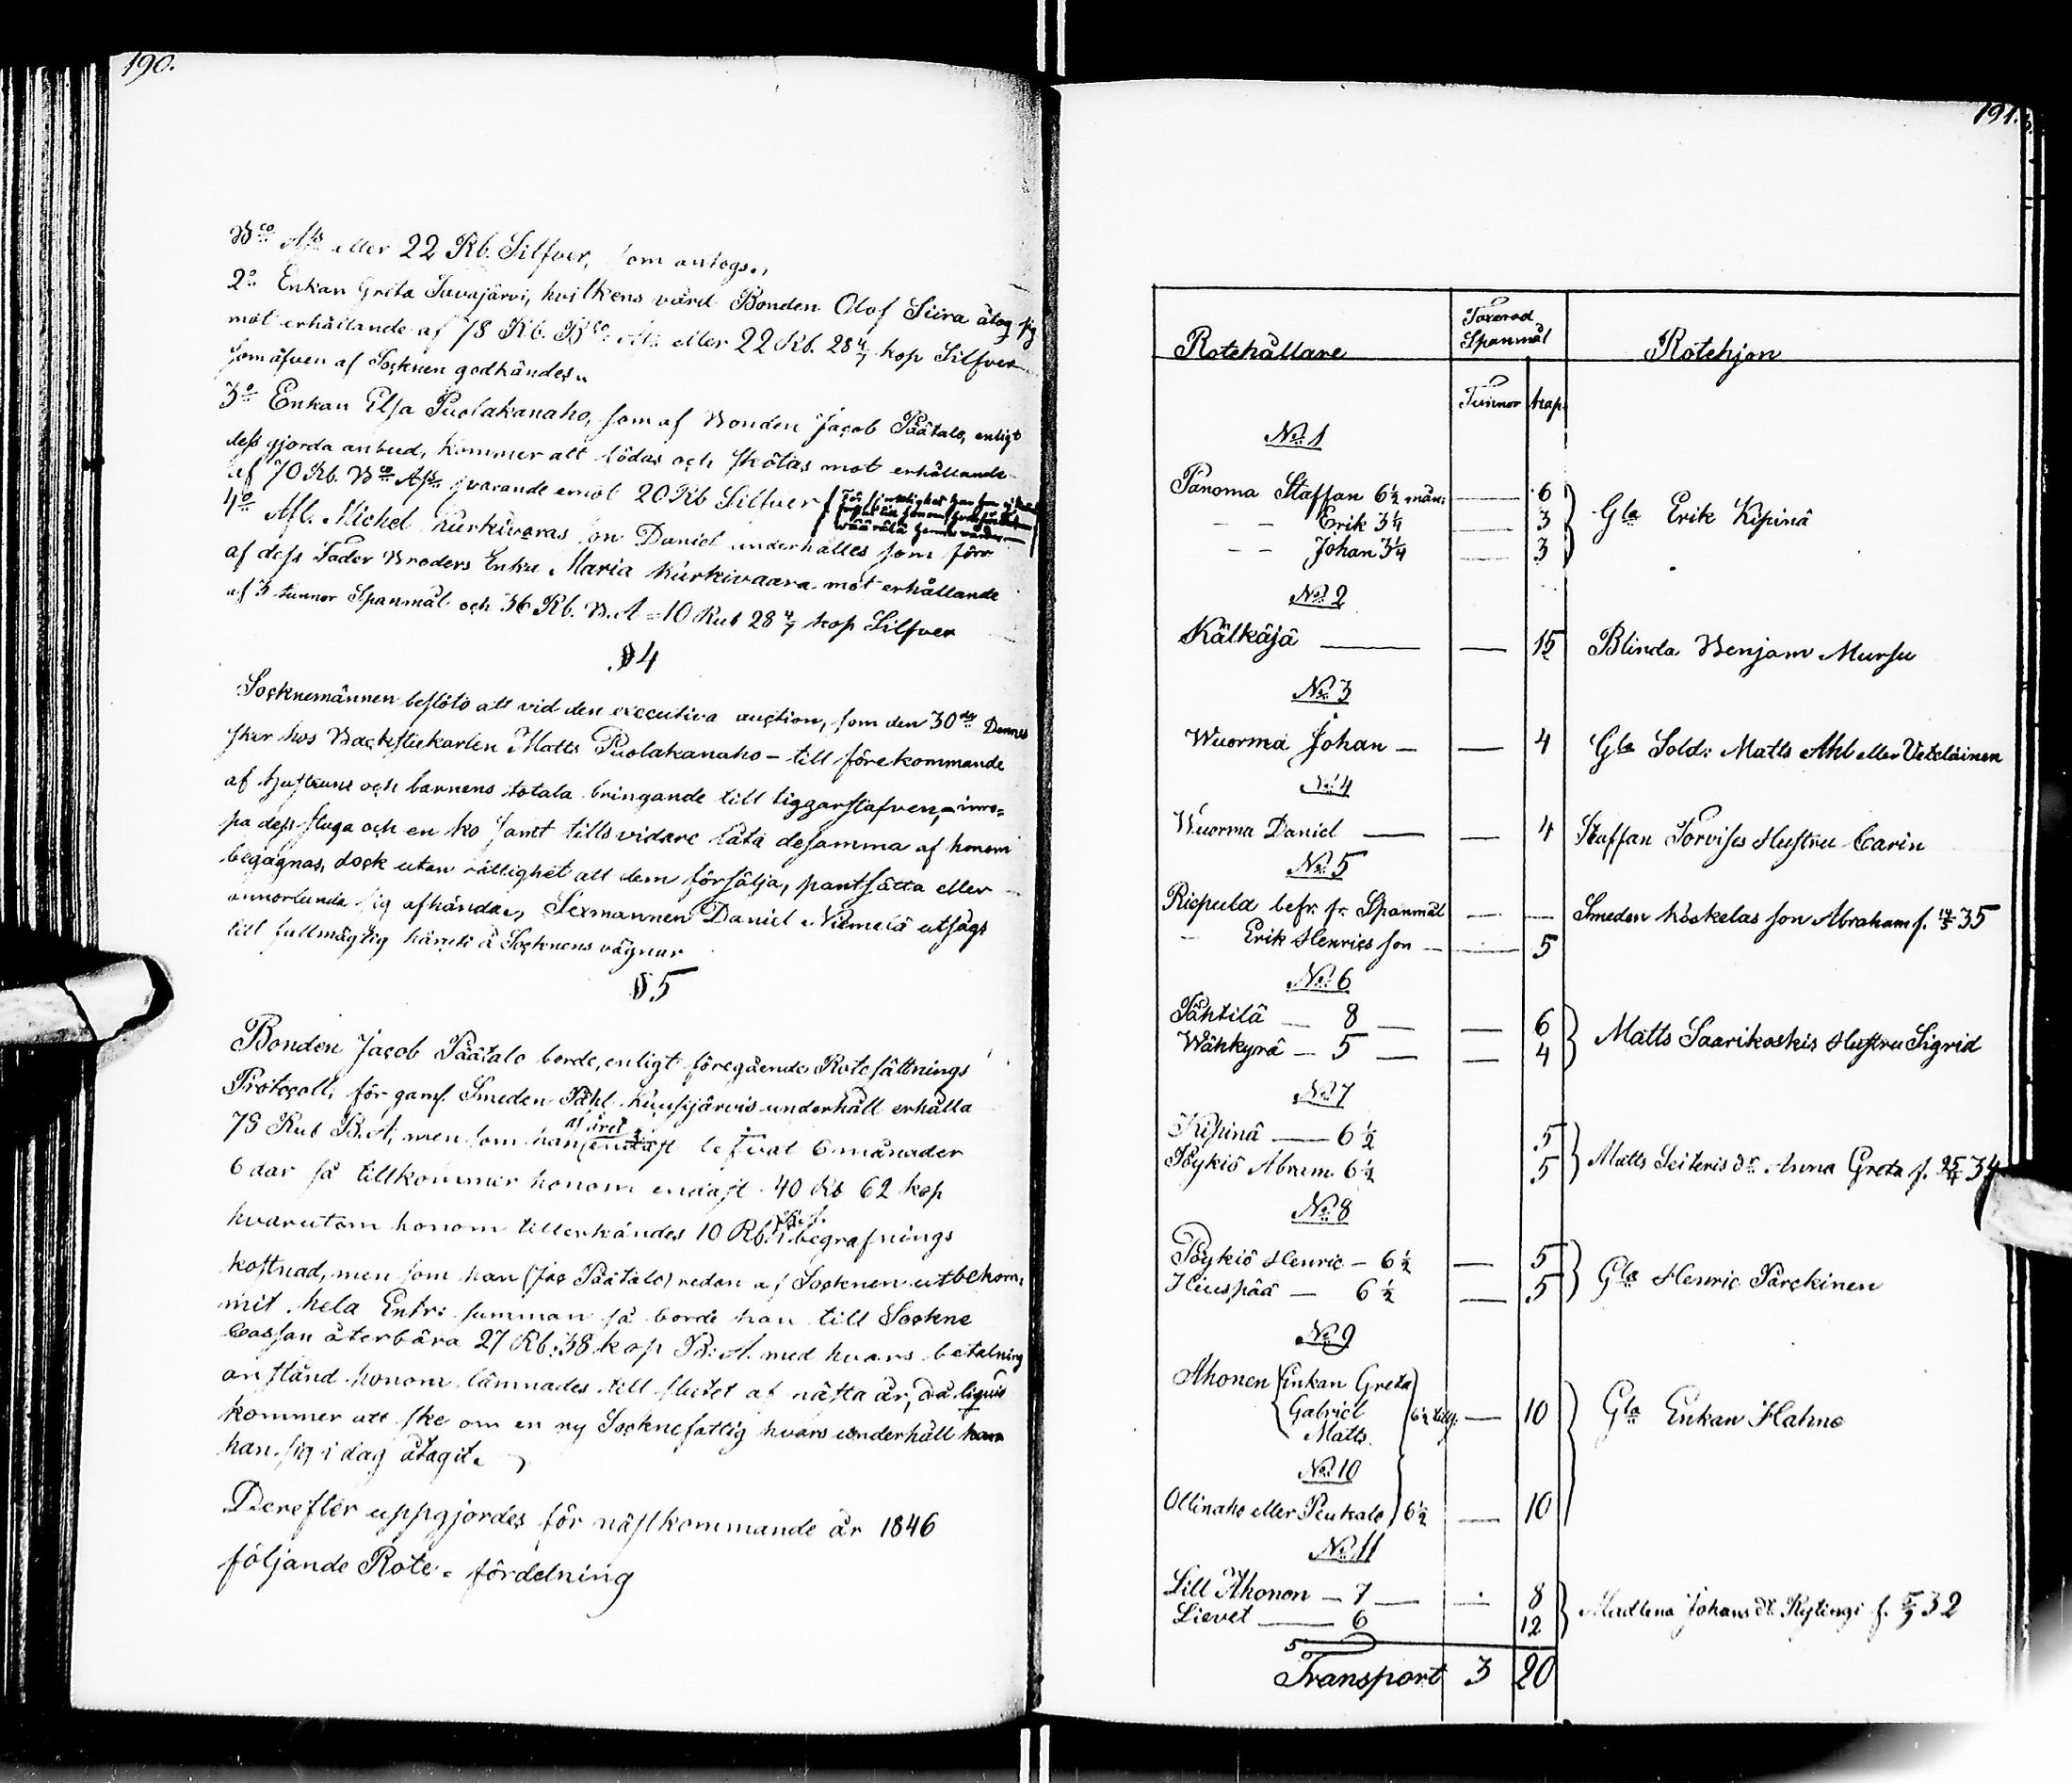 190.
B<sup>co</sup> A<sup>ts</sup> eller 22 Rb. Silfver, som antogs.,
2<sup>o</sup> Enkan Greta Juvajärvi, hvilkens vård Bonden Olof Siira åtog sig
mot erhållande af 78 Rb. B<sup>co</sup> eller 22 Rb. 28 4/7 kop Silfver
som äfven af Socknen godkändes.,
3<sup>o</sup> Enkan Elsa Puolakanaho, som af Bonden Jacob Päätalo, enligt
dess gjorda anbud, kommer att födas och skötas mot erhållande
af 70 Rb. B<sup>co</sup> Ass svarande emot 20 Rb Silfver
4<sup>o</sup> Afl. Michel Kurkivaras son Daniel underhålles som förr
af dess Fader Broders Enka Maria Kurkivaara mot erhållande
af 3 tunnor Spanmål och 36 Rb. B. A = 10 Rub 28 4/7 kop Silfver
§ 4
Socknemännen beslöto att vid den executiva auction, som den 30<sup>de</sup> Dennes
sker hos Backstukarlen Matts Puolakanaho – till förekommande
af hustruns och barnens totala bringande till tiggarstafven, – inro=
pa dess stuga och en ko samt tillsvidare låta desamma af honom
begagnas, dock utan rättighet att dem försälja, pantsätta eller
annorlunda sig afhända., Sexmannen Daniel Niemelä utsågs
till fullmägtig härtill å Socknens vägnar
§ 5
Bonden Jacob Päätalo borde, enligt föregående Rotesättnings
Protocoll, för gaml. Smeden Påhl Kuusijärvis underhåll erhålla
78 Rub B. A, men som han af året endast lefvat 6 månader
6 dar så tillkommer honom endast 40 Rb 62 kop
hvarutom honom tillerkändes 10 Rb. i begrafnings
kostnad, men som han (Jac Päätalo) redan af Socknen utbekom=
mit hela Entr: summan så borde han till Sockne
Cassan återbära 27 Rb: 38 kop B: A. med hvars betalning
anstånd honom lämnades till slutet af nästa år, då liquid
kommer att ske om en ny Socknefattig hvars underhåll
han sig i dag åtagit.
Derefter uppgjordes för nästkommande år 1846
följande Rote= fördelning
191.
Rotehållare Taxerad Spanmål Rotehjon
Tunnor kap.
No. 1
Panoma Staffan 6½ män: — 6 Gla Erik Kipinä
– – Erik 3¼ — 3
– – Johan 3¼ — 3
No. 2
Kälkäjä — — 15 Blinda Benjam Mursu
No. 3
Wuorma Johan – — 4 Gla Sold: Matts Ahl eller Veteläinen
No. 4
Wuorma Daniel — — 4 Staffan Torvises Hustru Carin
No. 5
Riepula befr. fr. Spanmål — — Smeden Köskelas son Abraham f. 35
– Erik Henrics son – — 5
No. 6
Tähtilä — 8 — — 6 Matts Saarikoskis Hustru Sigrid
Wähkyrä — 5 — — 4
No. 7
Kipinä — 6½ 5 Matts Seiteris dr. Anna Greta f. 25/4 34
Pöykiö Abram 6½ 5
No. 8
Pöykiö Henric – 6½ — 5 Gla Henric Parckinen
Hiuspää — 6½ — 5
No. 9
Ahonen Enkan Greta
Gabriel 6½ tills. — 10 Gla Enkan Halme
Matts
No. 10
Ollinaho eller Peukalo 6½ — 10
No. 11
Lill Ahonen – 7 — — 8 Madlena Johans dr. Kylingi f. 32
Lievet — 6 12
Transport 3 20